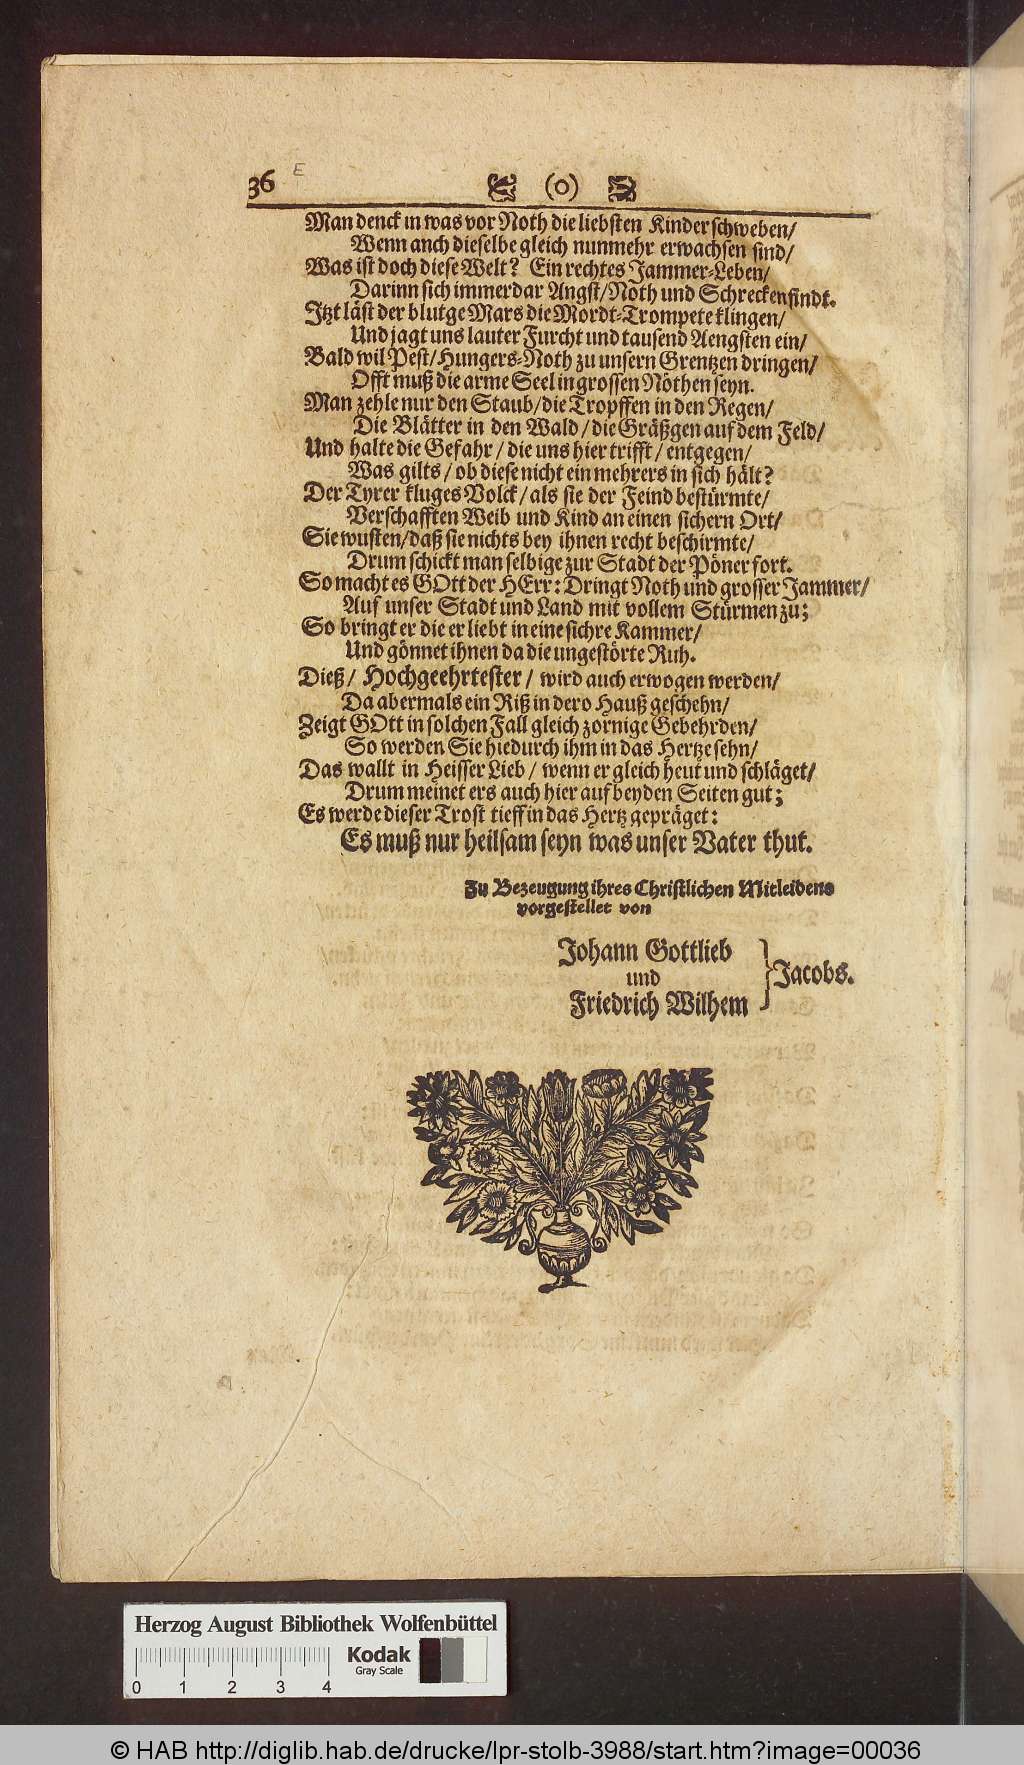 36 E (o)
Man denck in was vor Noth die liebsten Kinder schweben/
Wenn anch dieselbe gleich nunmehr erwachsen sind/
Was ist doch diese Welt? Ein rechtes Jammer-Leben/
Darinn sich immerdar Angst/Noth und Schrecken findt.
Itzt läst der blutge Mars die Mordt-Trompete klingen/
Und jagt uns lauter Furcht und tausend Aengsten ein/
Bald wil Pest/Hungers-Noth zu unsern Grentzen dringen/
Offt muß die arme Seel in grossen Nöthen seyn.
Man zehle nur den Staub/die Tropffen in den Regen/
Die Blätter in den Wald/die Gräßgen auf dem Feld/
Und halte die Gefahr/die uns hier trifft/entgegen/
Was gilts/ob diese nicht ein mehrers in sich hält?
Der Tyrer kluges Volck/als sie der Feind bestürmte/
Verschafften Weib und Kind an einen sichern Ort/
Sie wusten/daß sie nichts bey ihnen recht beschirmte/
Drum schickt man selbige zur Stadt der Pöner fort.
So macht es GOtt der HErr: Dringt Noth und grosser Jammer/
Auf unser Stadt und Land mit vollem Stürmen zu;
So bringt er die er liebt in eine sichre Kammer/
Und gönnet ihnen da die ungestörte Ruh.
Dieß/ Hochgeehrtester/ wird auch erwogen werden/
Da abermals ein Riß in dero Hauß geschehn/
Zeigt GOtt in solchen Fall gleich zornige Gebehrden/
So werden Sie hiedurch ihm in das Hertze sehn/
Das wallt in Heisser Lieb/wenn er gleich heut und schläget/
Drum meinet ers auch hier auf beyden Seiten gut;
Es werde dieser Trost tieff in das Hertz gepräget:
Es muß nur heilsam seyn was unser Vater thut.
Zu Bezeugung ihres Christlichen Mitleidens
vorgestellet von
Johann Gottlieb
und } Jacobs.
Friedrich Wilhem
Herzog August Bibliothek Wolfenbüttel
Kodak
Gray Scale
0 1 2 3 4
© HAB http://diglib.hab.de/drucke/lpr-stolb-3988/start.htm?image=00036